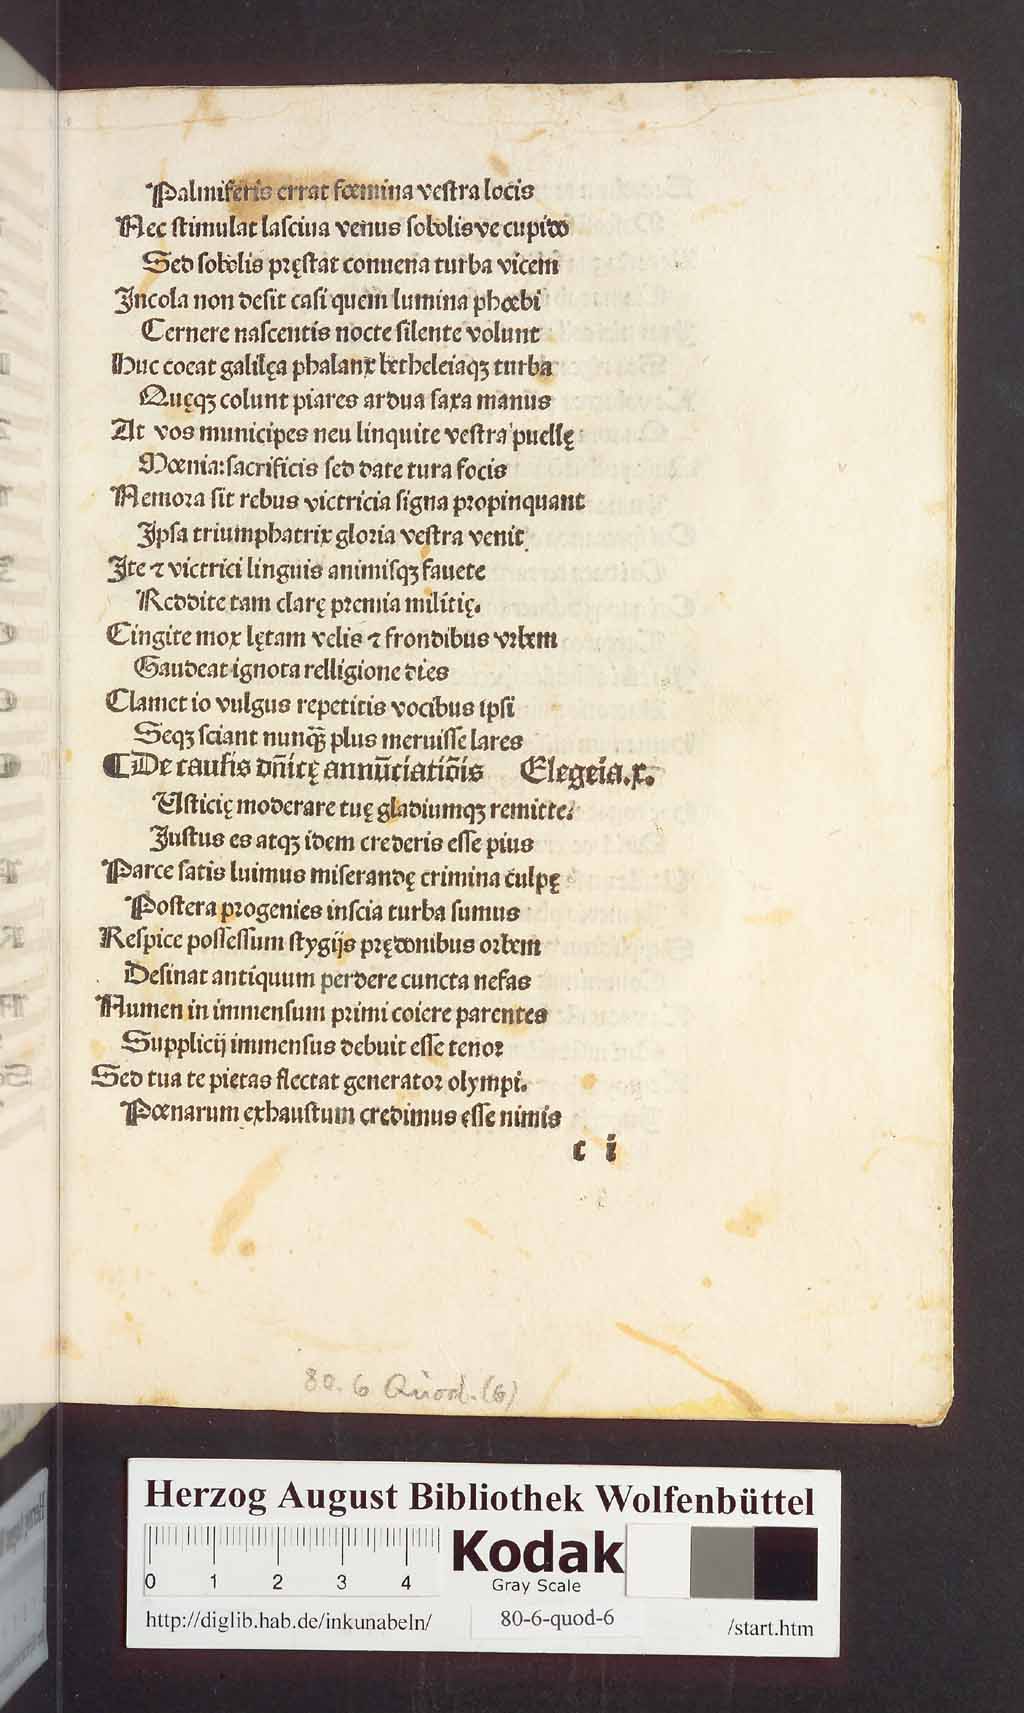 Palmiferis errat fœmina vestra locis
Nec stimulat lasciua venus sobolisve cupido
Sed sobolis pręstat conuena turba vicem
Incola non desit casi quem lumina phœbi
Cernere nascentis nocte silente volunt
Huc coeat galilęa phalanx betheleiaqꝫ turba
Quęqꝫ colunt piares ardua saxa manus
At vos municipes neu linquite vestra puellę
Mœnia: sacrificis sed date tura focis
Nemora sit rebus victricia signa propinquant
Ipsa triumphatrix gloria vestra venit
Ite ⁊ victrici linguis animisqꝫ fauete
Reddite tam clarę premia militię.
Cingite mox lętam velis ⁊ frondibus vrbem
Gaudeat ignota relligione dies
Clamet io vulgus repetitis vocibus ipsi
Seqꝫ sciant nunqꝫ̃ plus meruisse lares
¶ De causis dn̄icę annūciatiōis Elegeia.x.
Usticię moderare tuę gladiumqꝫ remitte:
Justus es atqꝫ idem crederis esse pius
Parce satis luimus miserandę crimina culpę
Postera progenies inscia turba sumus
Respice possessum stygijs prędonibus orbem
Desinat antiquum perdere cuncta nefas
Numen in immensum primi coiere parentes
Supplicij immensus debuit esse tenor
Sed tua te pietas flectat generator olympi.
Pœnarum exhaustum credimus esse nimis
c i
80. 6 Quod. (6)
Herzog August Bibliothek Wolfenbüttel
0 1 2 3 4
Kodak
Gray Scale
http://diglib.hab.de/inkunabeln/
80-6-quod-6
/start.htm